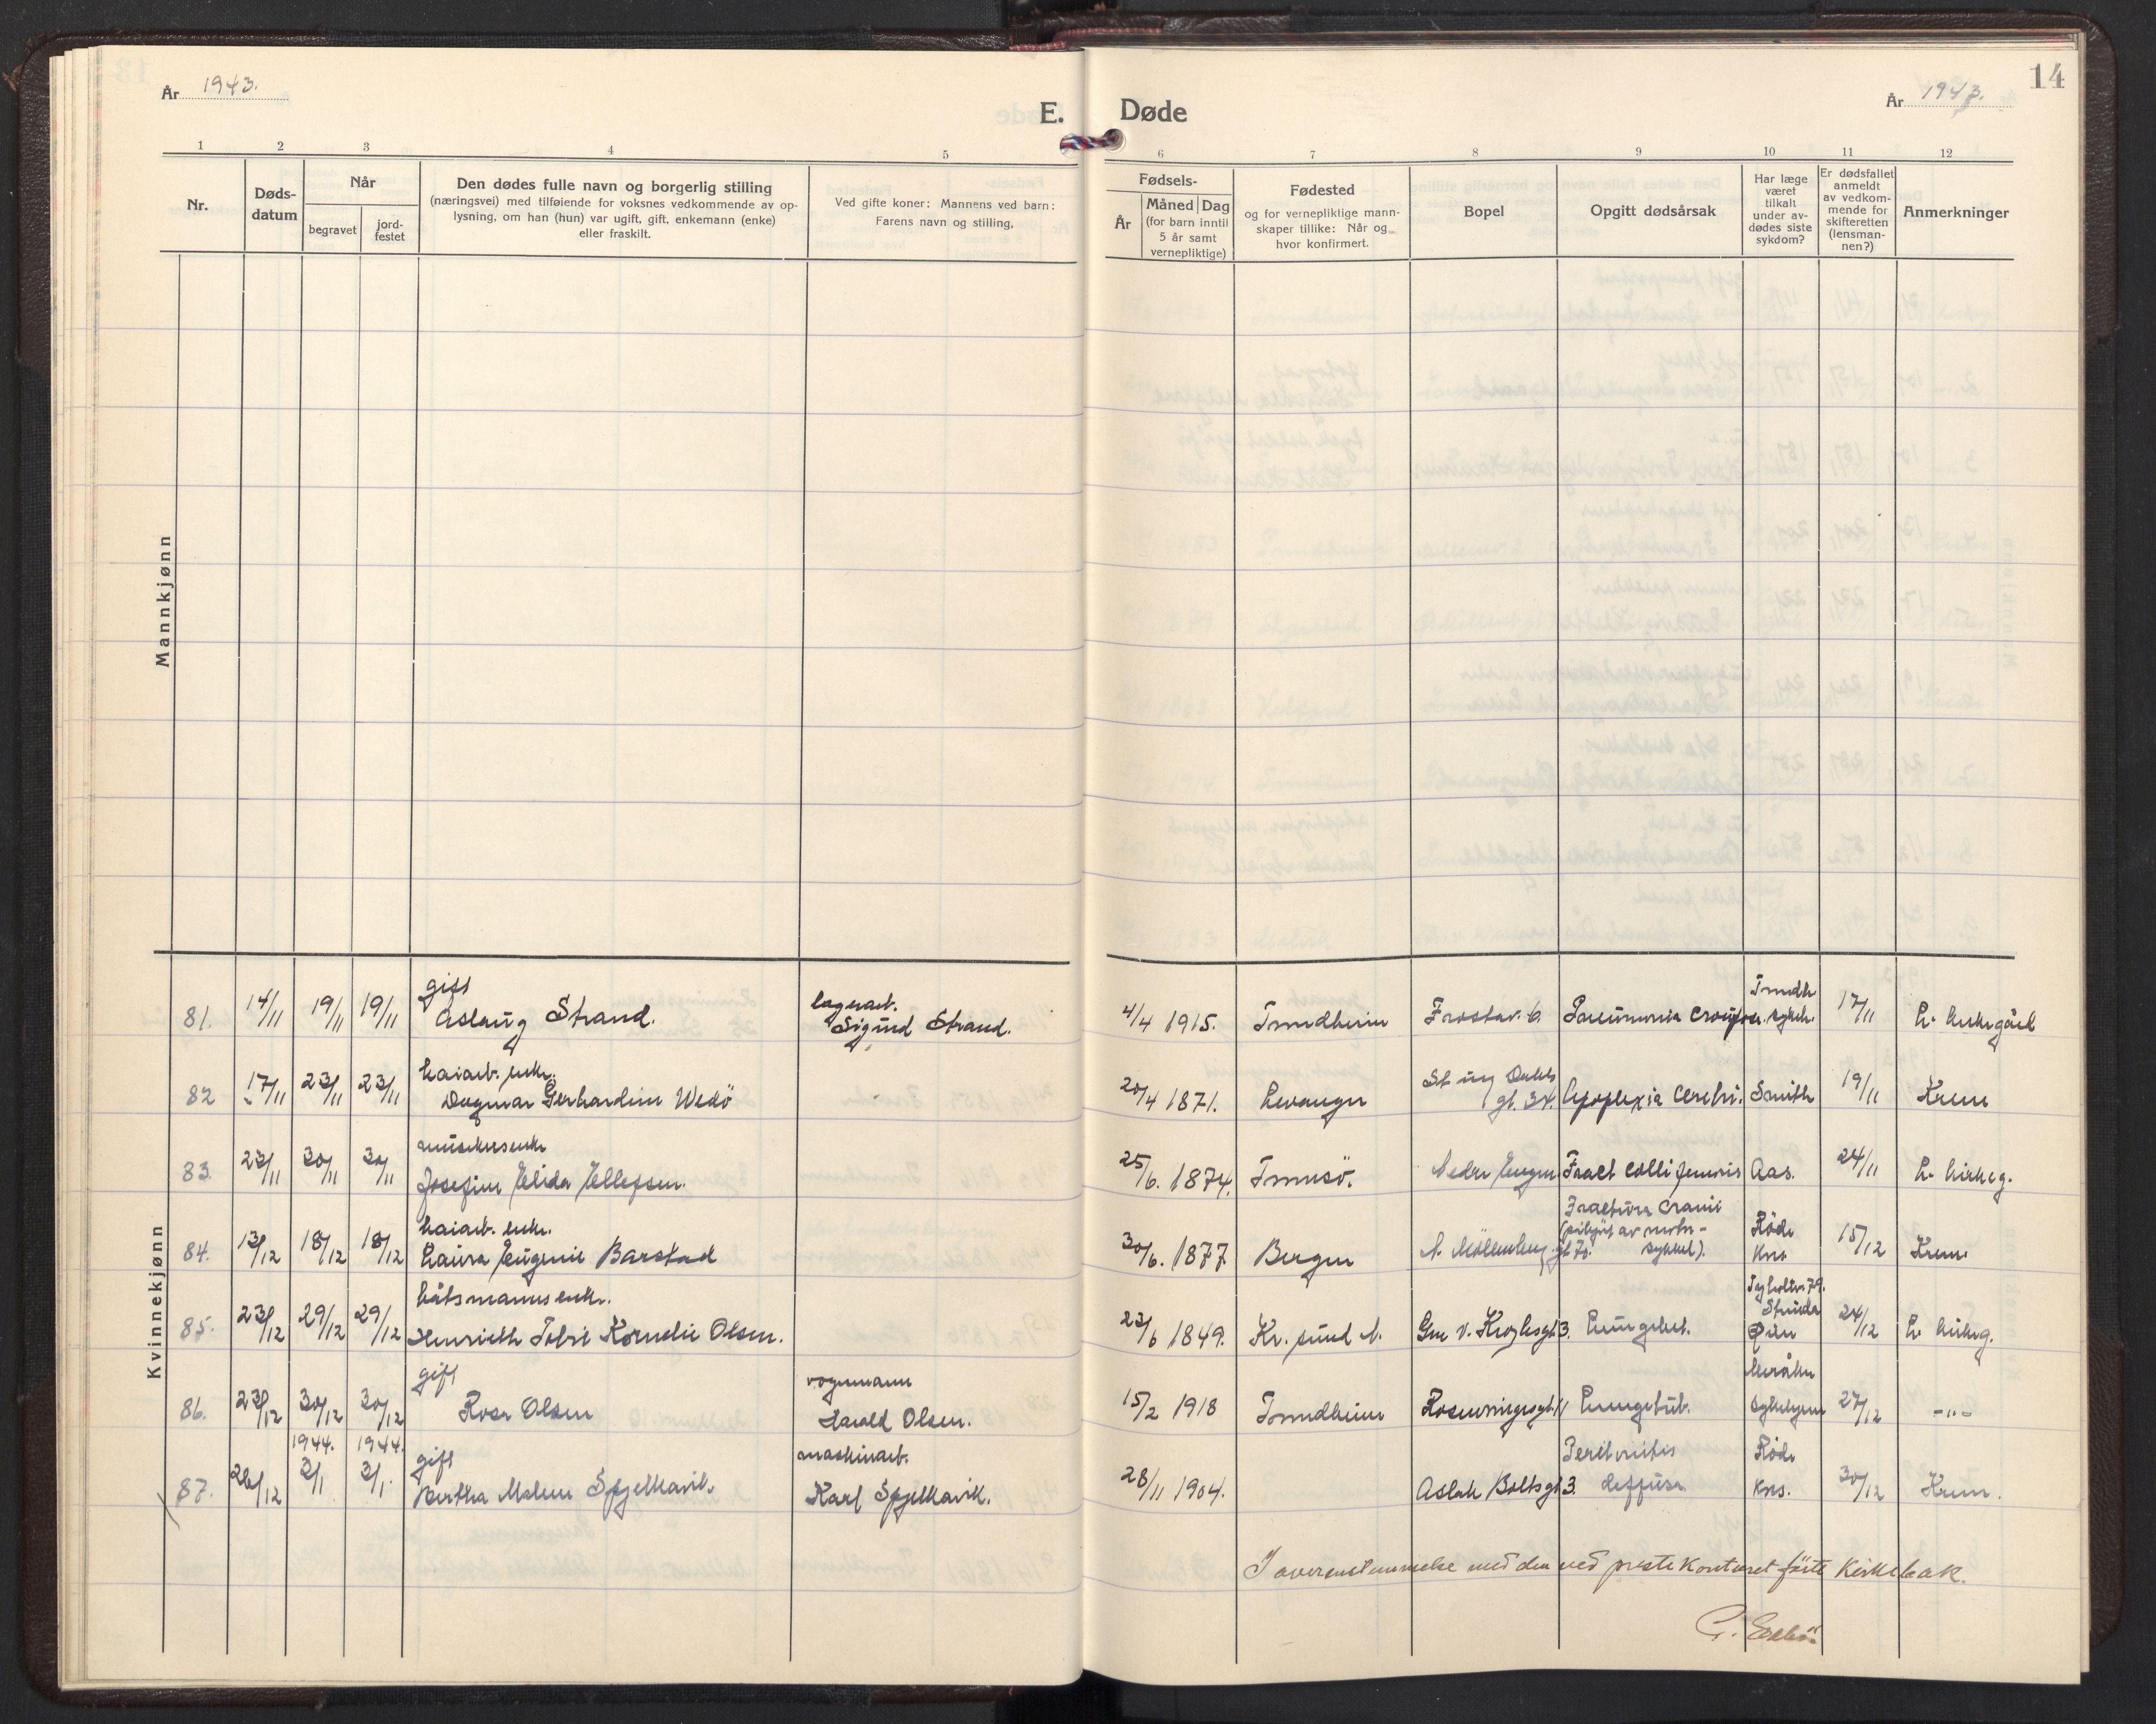 År 1943.
E. Døde
År 1943.
14
1 2 3 4 5 6 7 8 9 10 11 12
Nr.
Døds-
datum
Når
begravet
jord-
festet
Den dødes fulle navn og borgerlig stilling
(næringsvei) med tilføiende for voksnes vedkommende av op-
lysning, om han (hun) var ugift, gift, enkemann (enke)
eller fraskilt.
Ved gifte koner: Mannens ved barn:
Farens navn og stilling,
Fødsels-
År
Måned Dag
(for barn inntil
5 år samt
vernepliktige)
Fødested
og for vernepliktige mann-
skaper tillike: Når og
hvor konfirmert.
Bopel
Opgitt dødsårsak
Har læge
været
tilkalt
under av-
dødes siste
sykdom?
Er dødsfallet
anmeldt
av vedkom-
mende for
skifteretten
(lensman-
nen?)
Anmerkninger
Mannkjønn
Kvinnekjønn
gift lagerarb. Trondh
81. 14/11 19/11 19/11 Aslaug Strand. Sigurd Strand. 4/4 1915. Trondheim Frostav. 6. Pneumonia crouposa sykeh. 17/11 L. kirkegård
havarb. enke.
82 17/11 23/11 23/11 Dagmar Gerhardine Wedö 20/4 1871. Levanger gt. 34. Apoplexia cerebri. Smith 19/11 Krem
musikersenke
83. 23/11 30/11 30/11 Josefine Elida Ellefsen. 25/6. 1874. Tromsö. Nedre Fract colli femoris Aas. 24/11 L. kirkeg.
havarb. enke. Fractura cranii
84. 13/12 18/12 18/12 Laura Eugenie Barstad 30/6. 1877. Bergen N. Möllenberg gt 70. (påkjört av motor-
sykkel). Röde
Krs 15/12 Krem.
båtsmanns enke. 79.
85. 23/12 29/12 29/12 Kornelie Olsen. 23/6 1849. Kr. sund N. Gm v. Kroghsgt 3. Lungebet. 24/12 L. kirkeg.
gift vognmann
86. 23/12 30/12 30/12 Rosa Olsen Harald Olsen. 15/2 1918 Trondheim Lungetub. 27/12 -"-
1944. 1944.
gift maskinarb. Peritonitis Röde
87. 26/12 3/1 3/1. Bertha Malene Spjelkavik. Karl Spjelkavik. 28/11 1904. Aslak Boltsgt 3. diffusa Krs. 30/12 Krem.
I overenstemmelse med den ved prestekontoret förte kirkebok.